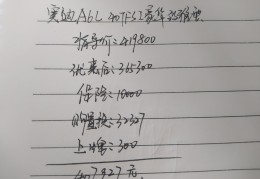 奥迪A6L 40TFSI 豪华致雅型
指导价:419800
优惠后:365300
保险:10000
购置税:32327
上牌:300
407927元.